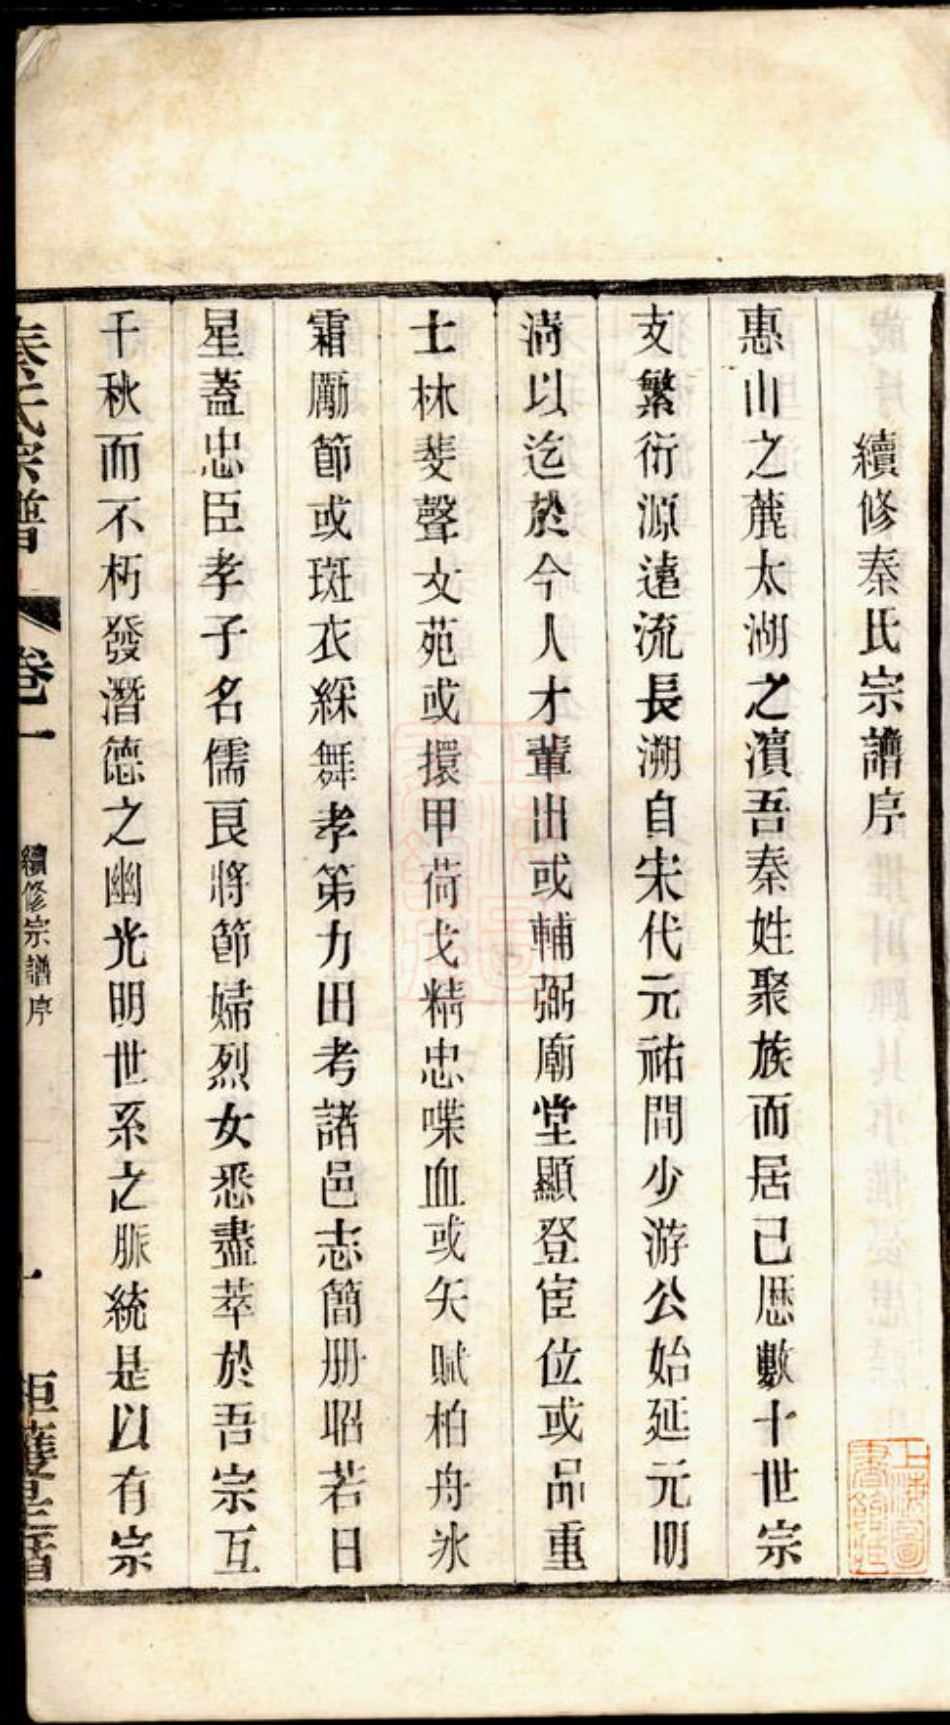 續修秦氏宗譜序
惠山之麓太湖之濵吾秦姓聚族而居已歴數十世宗
支繁衍源遠流長溯自宋代元祐間少游公始延元明
淸以迄於今人才輩出或輔弼廟堂顯登宦位或品重
士林斐聲文苑或擐甲荷戈精忠喋血或矢賦柏舟氷
霜勵節或斑衣綵舞孝第力田考諸邑志簡册昭若日
星蓋忠臣孝子名儒良將節婦烈女悉盡萃於吾宗互
千秋而不朽發潛德之幽光明世系之脈統是以有宗
秦氏宗譜
卷一
續修宗譜序
一
上海圖書館藏